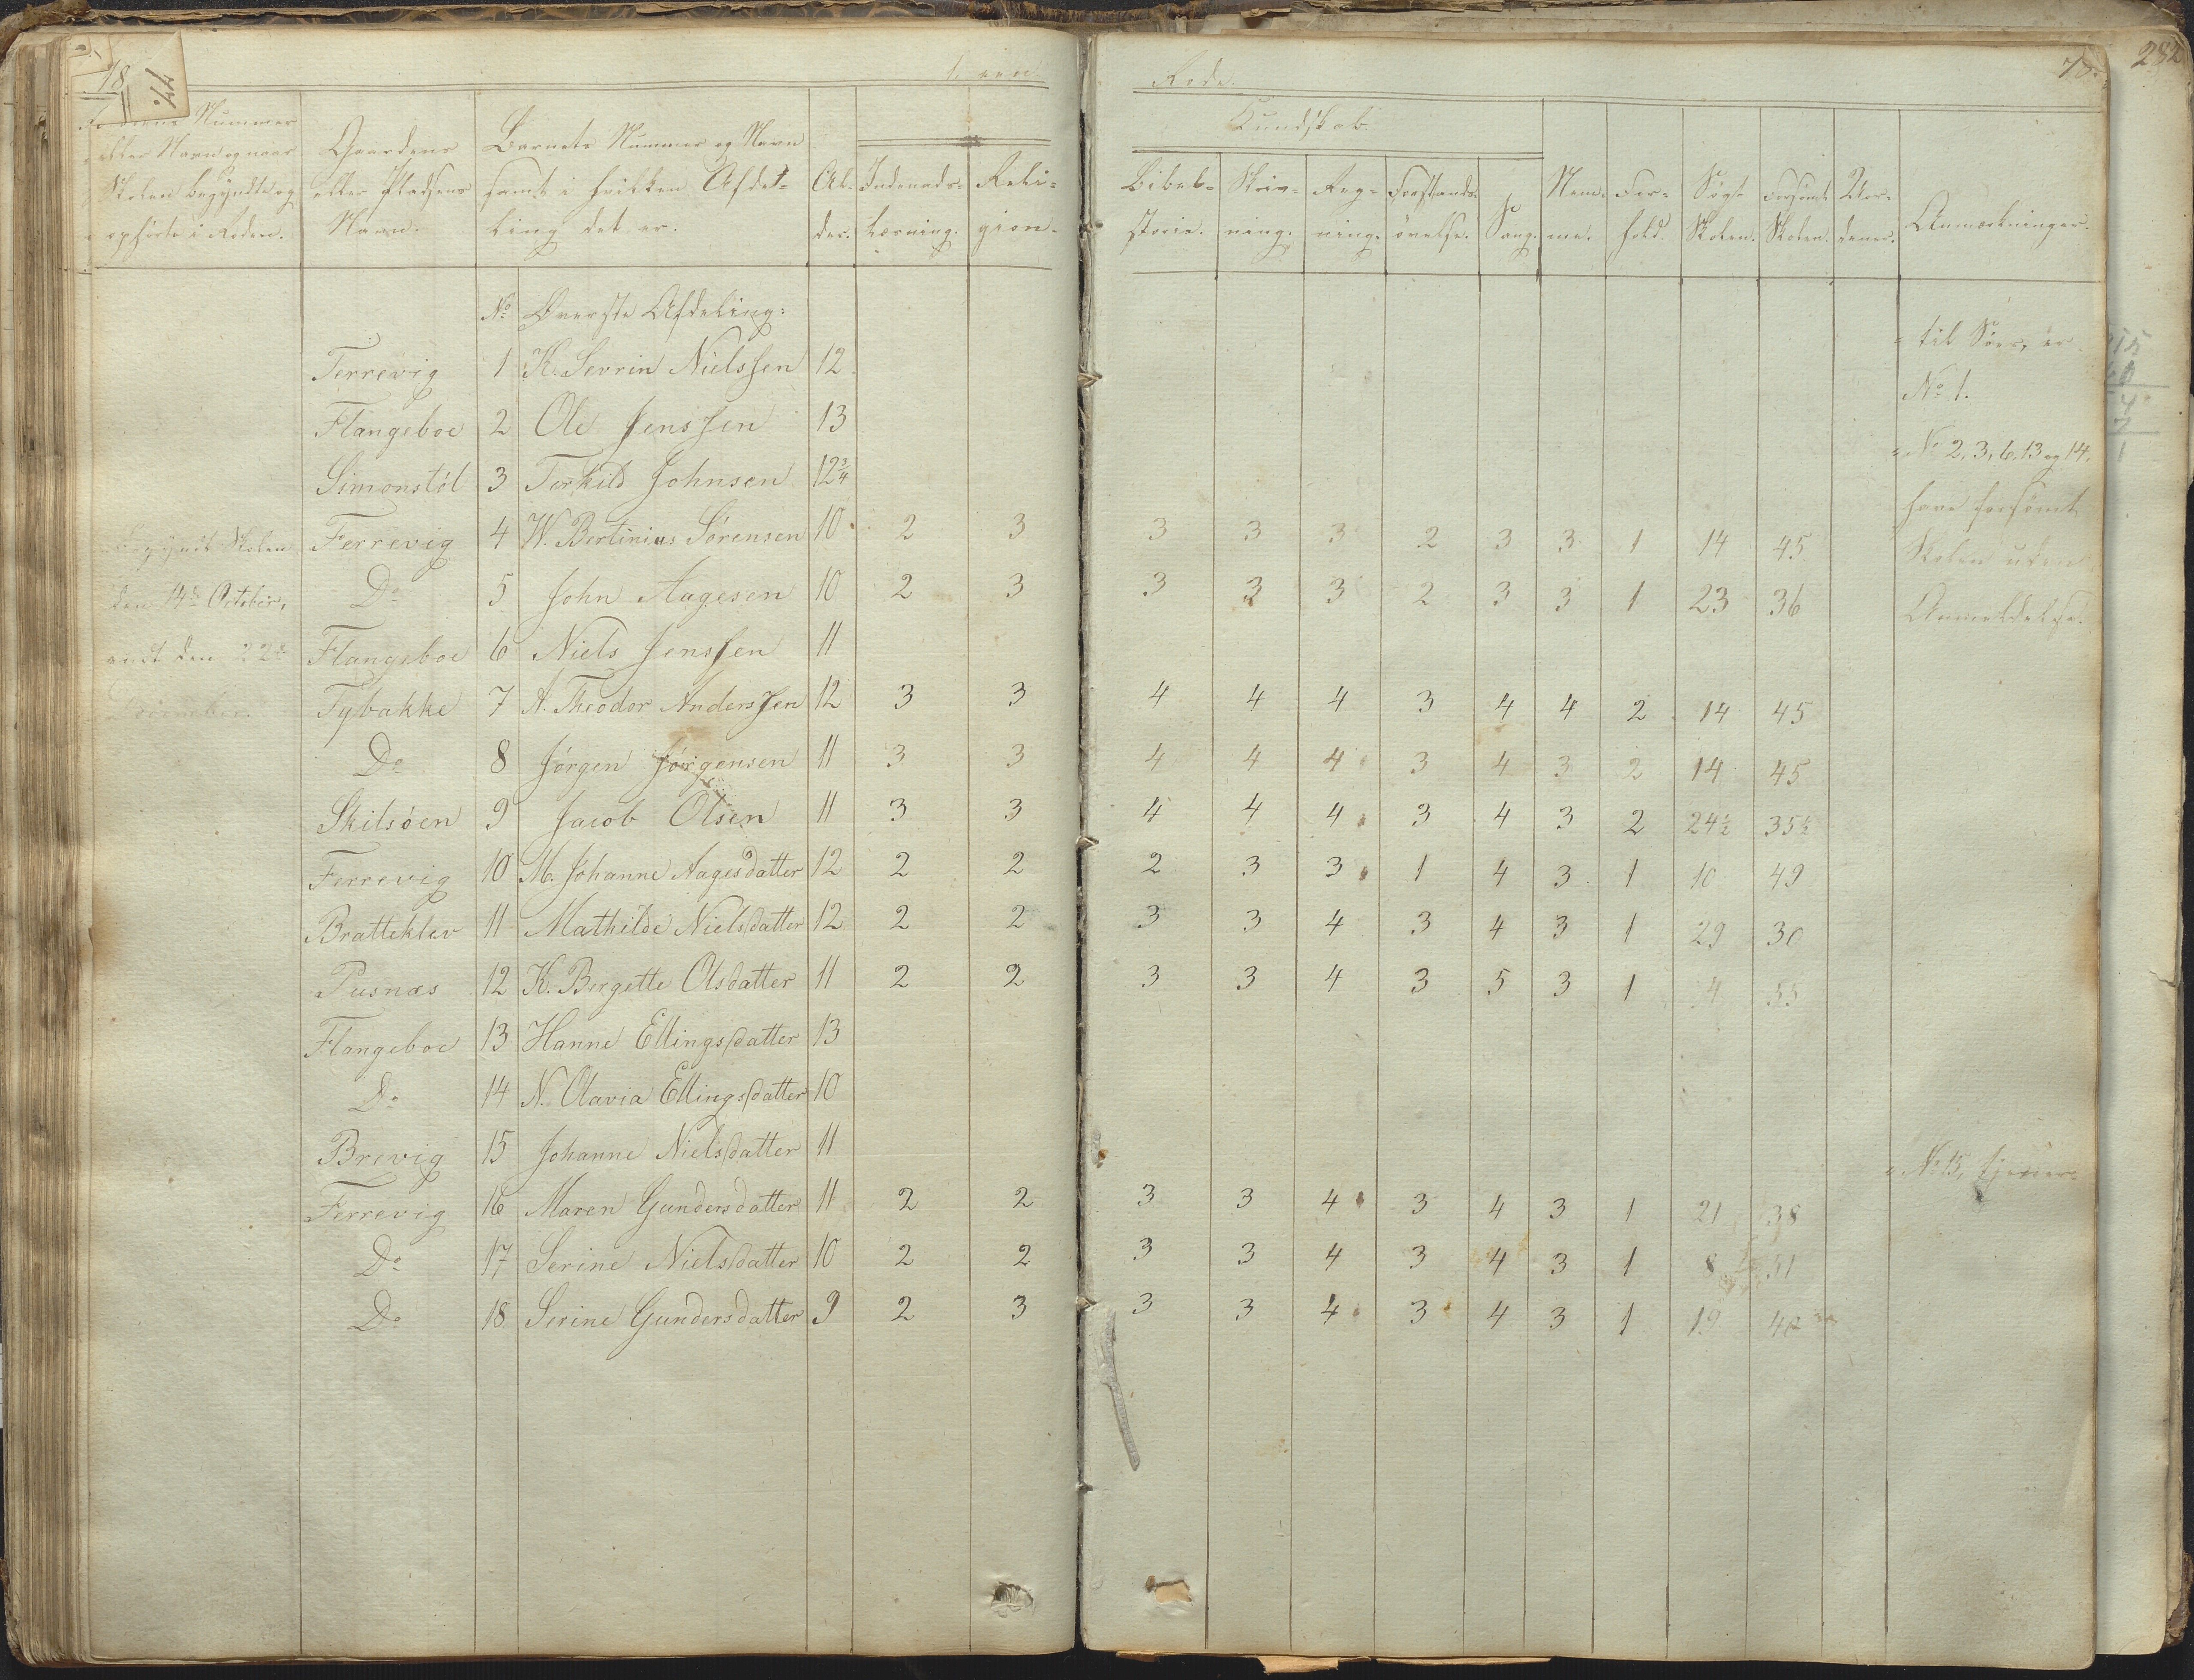 78
77.
Nummer
eller Navn og naar
Skolen begyndte og
ophörte i Roden.
Gaardens
eller Pladsens
Navn.
Barnets Nummer og Navn
samt i hvilken Afdel-
ling det er.
Al-
der.
Indenads-
læsning.
Reli-
gion.
Rode.
78.
282
Kundskab.
Bibel-
storie.
Skriv-
ning.
Reg-
ning.
Forstands-
övelse.
Sang.
Nem-
me.
For-
hold.
Sögt
Skolen.
Forsömt
Skolen.
Anmærkninger.
No Överste Afdeling:
Terrevig 1 K. Sevrin Nielssen 12
Flangeboe 2 Ole Jenssen 13
Simonstöl 3 Terkild Johnsen 12 3/4
Begyndt Skolen Ferrevig 4 W. Bertinius Sörensen 10 2 3 3 3 3 2 3 3 1 14 45
den 14de October, Do 5 John Aagesen 10 2 3 3 3 3 2 3 3 1 23 36
endt den 22de Flangeboe 6 Niels Jenssen 11
Tybakke 7 A. Theodor Anderssen 12 3 3 4 4 4 3 4 4 2 14 45
Do 8 Jörgen Jörgensen 11 3 3 4 4 4 3 4 3 2 14 45
Skilsöen 9 Jacob Olsen 11 3 3 4 4 4 3 4 3 2 24½ 35½
Ferrevig 10 M. Johanne Aagesdatter 12 2 2 2 3 3 1 4 3 1 10 49
Bratteklev 11 Mathilde Nielsdatter 12 2 2 3 3 4 3 4 3 1 29 30
Pusnæs 12 K. Birgette Olsdatter 11 2 2 3 3 4 3 5 3 1 4 55
Flangeboe 13 Hanne Ellingsdatter 13
Do 14 N. Olavia Ellingsdatter 10
Brevig 15 Johanne Nielsdatter 11
Ferrevig 16 Maren Gundersdatter 11 2 2 3 3 4 3 4 3 1 21 38
Do 17 Serine Nielsdatter 10 2 2 3 3 4 3 4 3 1 8 51
Do 18 Serine Gundersdatter 9 2 3 3 3 4 3 4 3 1 19 40
til Söes, er
No 1.
No 2, 3, 6, 13 og 14,
have forsömt
Skolen uden
Anmeldelse.
No 15, tjener